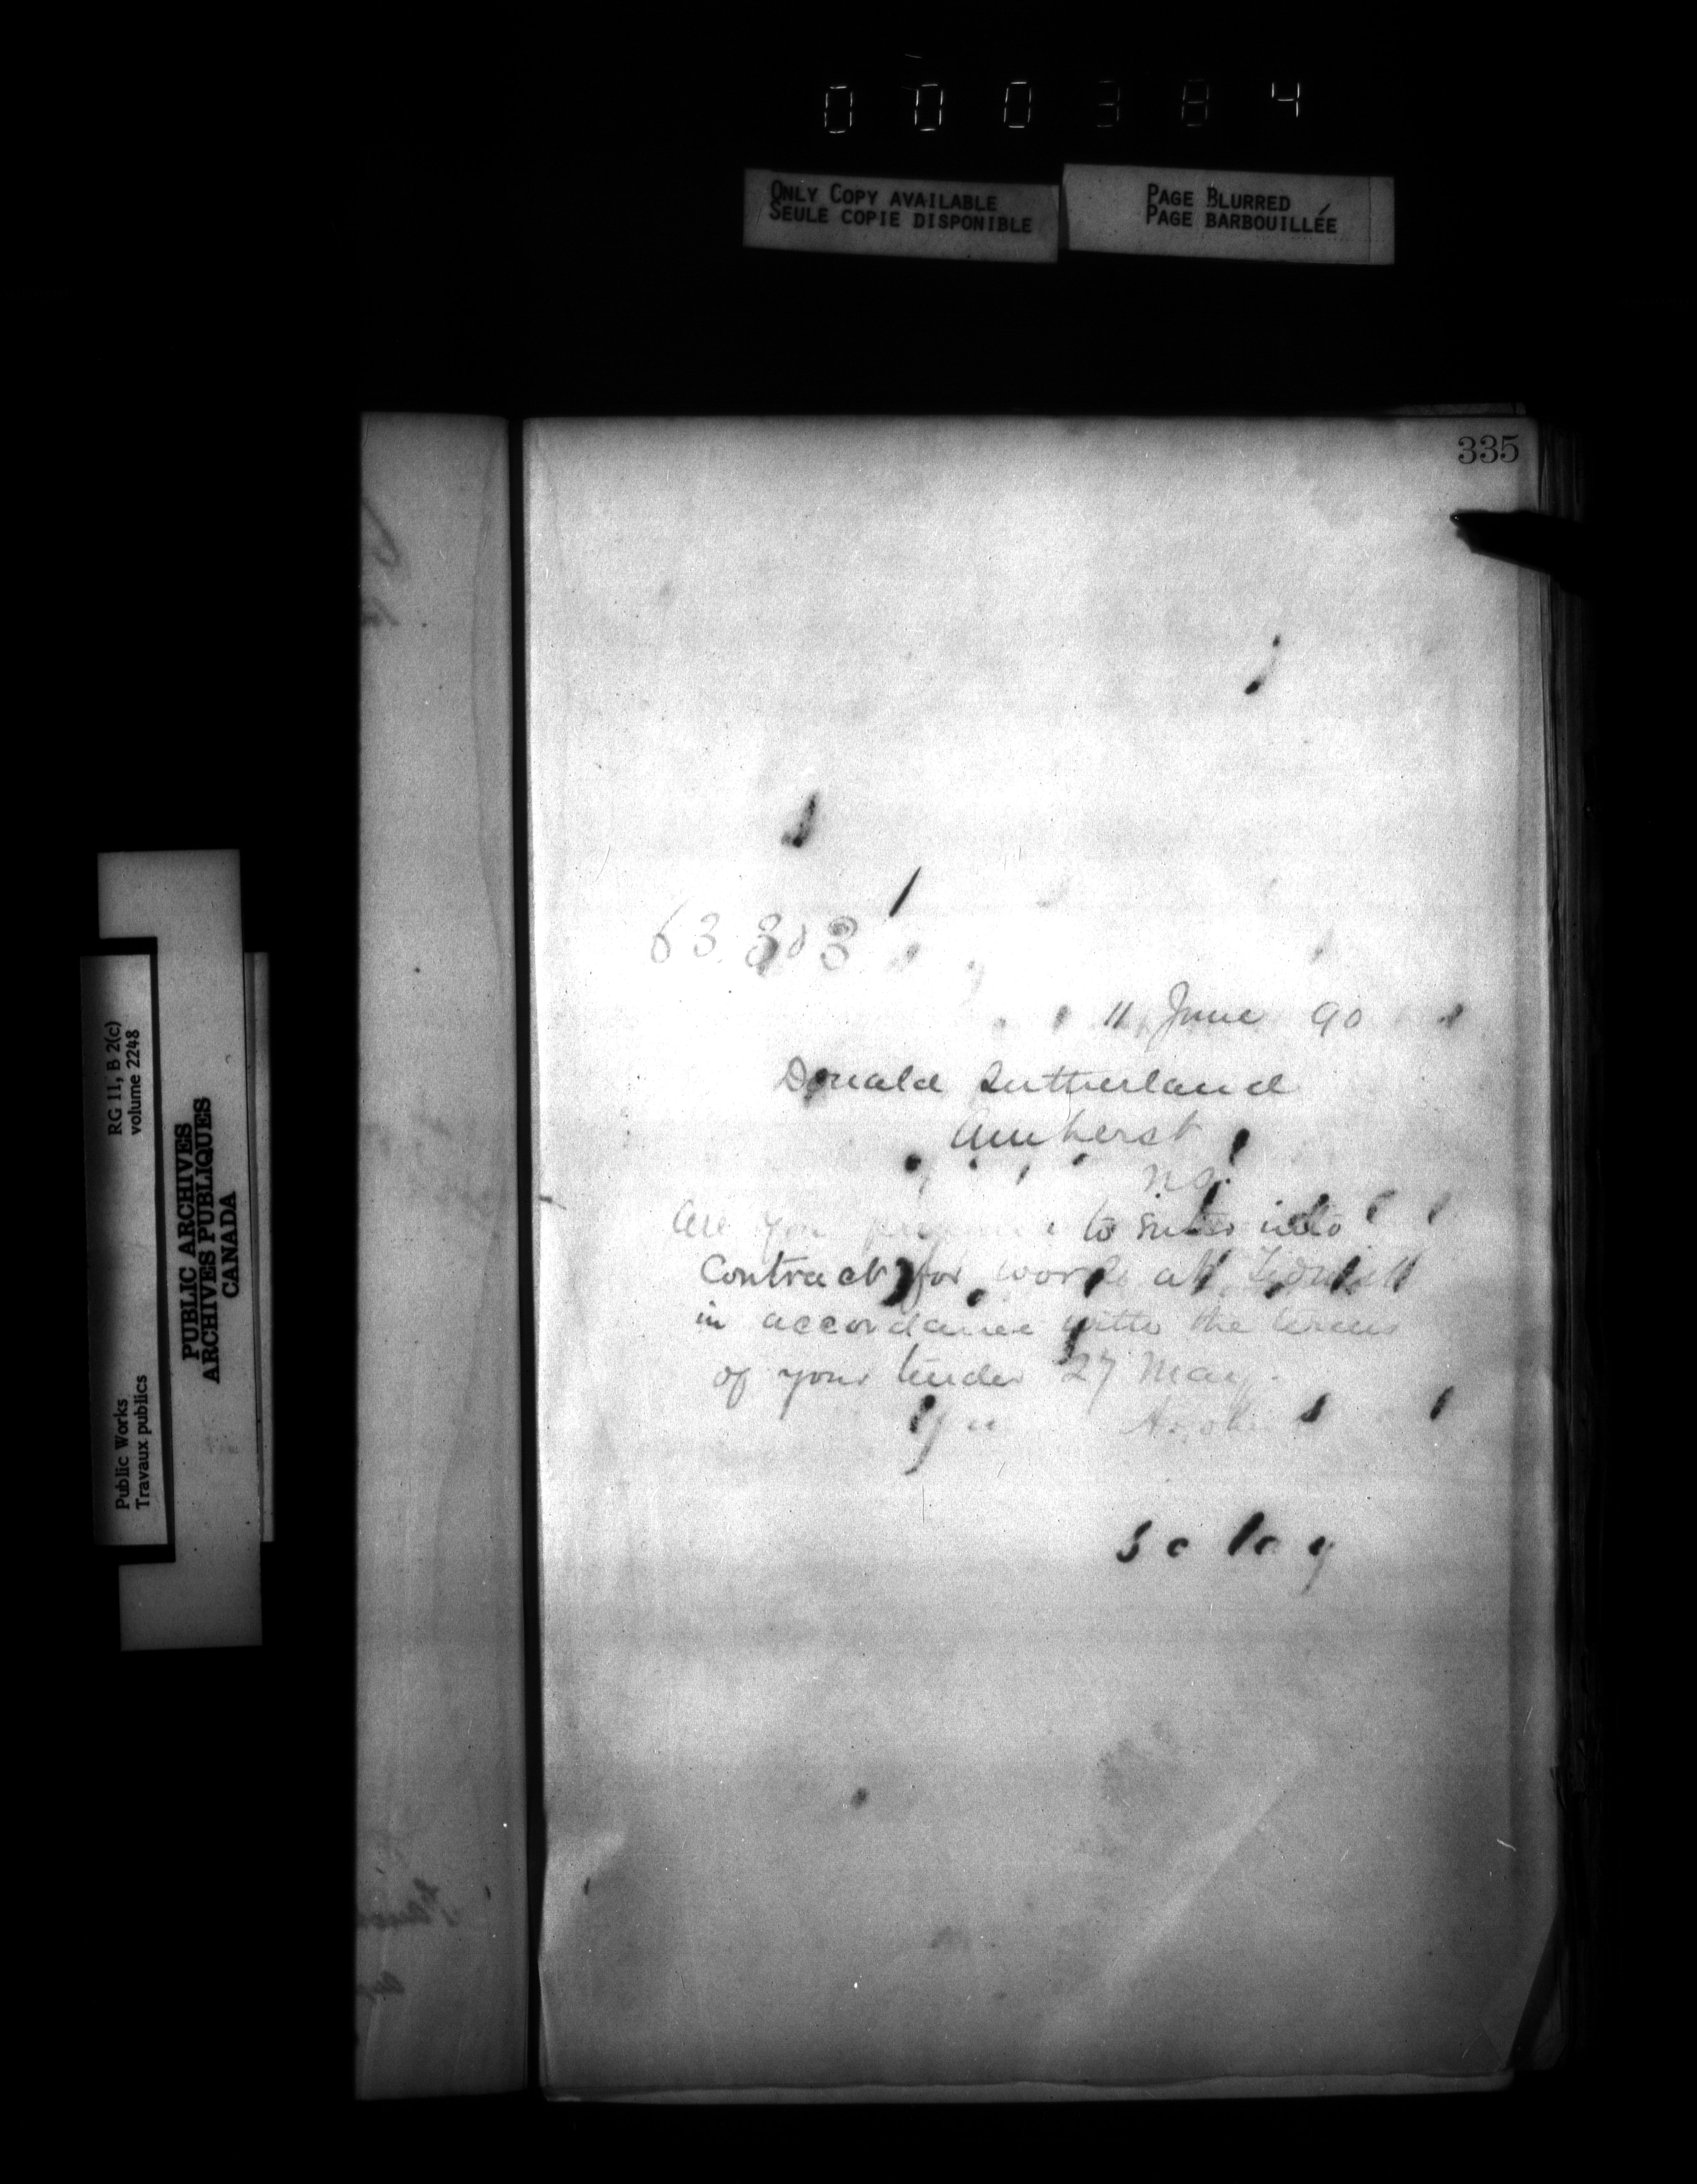 000384
ONLY COPY AVAILABLE
SEULE COPIE DISPONIBLE
PAGE BLURRED
PAGE BARBOUILLÉE
335
63.303
11 June 90
Donald Sutherland
Amherst
N.S.
Are you to enter into
Contract for works at
in accordance with the terms
of your tender 27 May.
Public Works
Travaux publics
RG 11, B 2(c)
volume 2248
PUBLIC ARCHIVES
ARCHIVES PUBLIQUES
CANADA